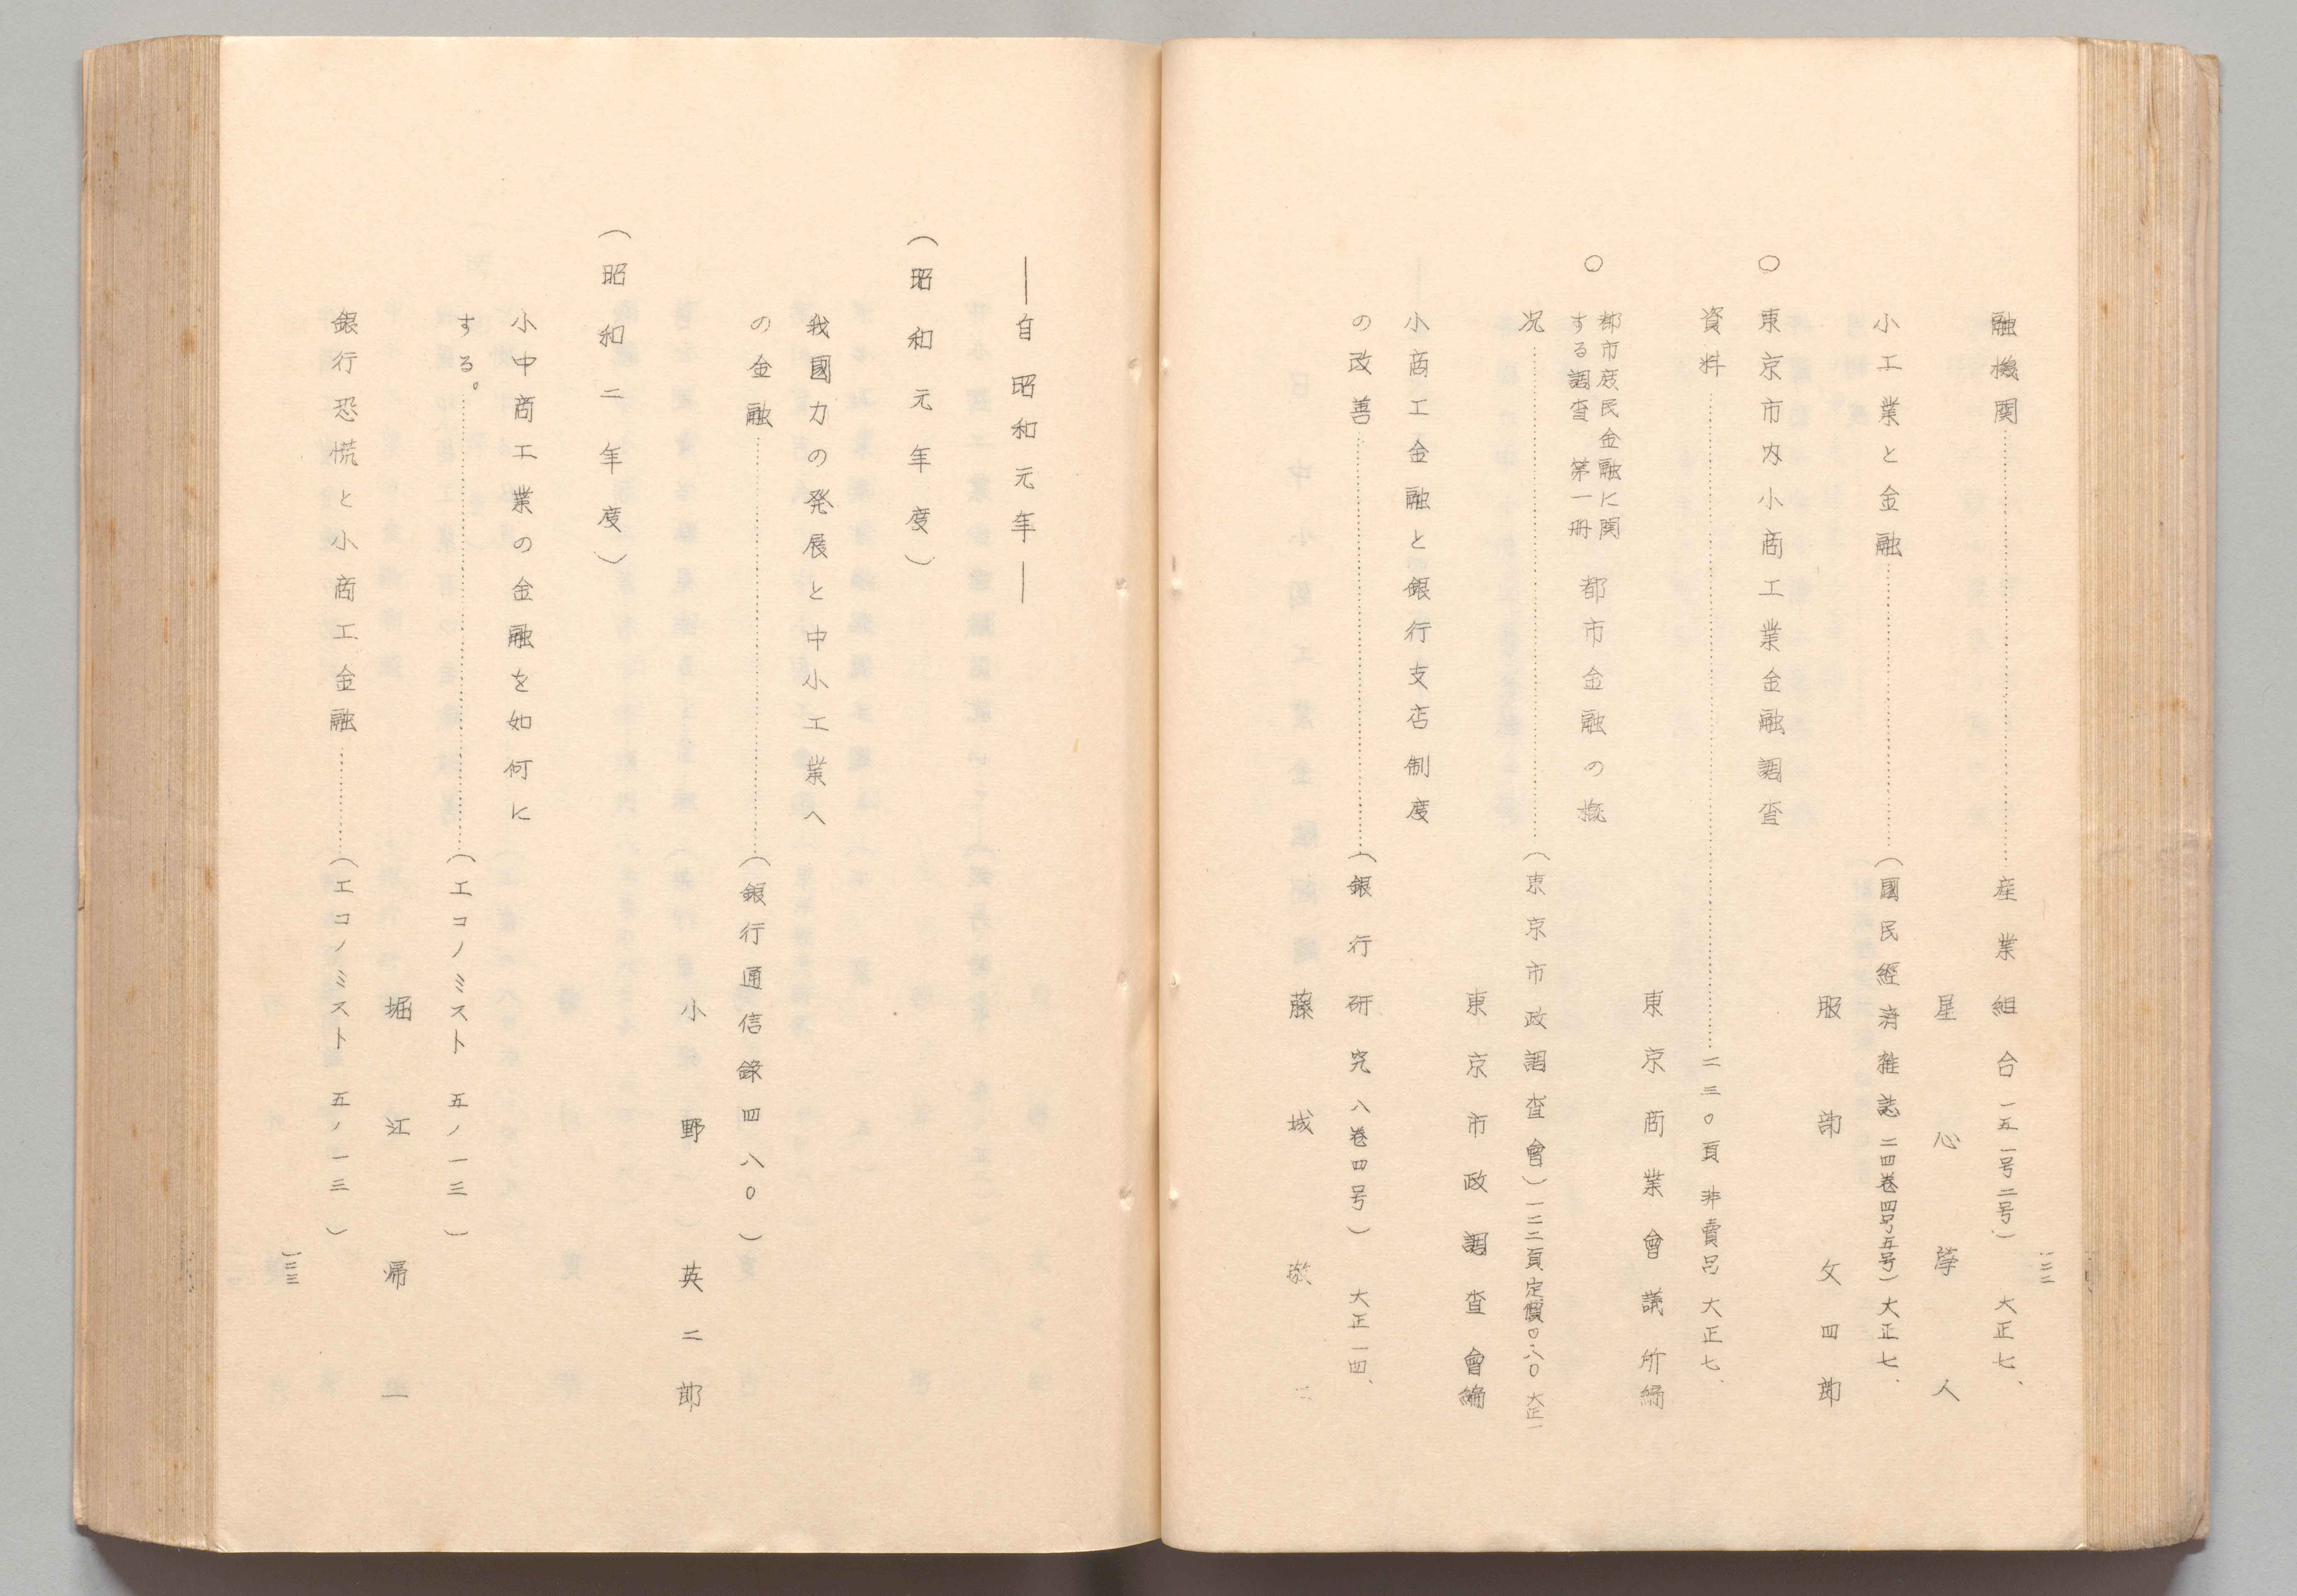 一二二
融機関……………産業組合一五一号二号） 大正七、
星心学人
小工業と金融……………（國民經済雑誌二四卷四号五号）大正七、
服部文四郎
○東京市内小商工業金融調査
資料……………二三〇頁 非賣品 大正七、
東京商業會議所編
○都市庶民金融に関
する調査 第一冊
都市金融の概
況……………（東京市政調査會）一二二頁定價〇.八〇 大正一
東京市政調査會編
小商工金融と銀行支店制度
の改善……………（銀行研究 八卷四号） 大正一四、
藤城敬二
―自昭和元年―
（昭和元年度）
我國力の発展と中小工業へ
の金融……………（銀行通信録四八〇）
小野英二郎
（昭和二年度）
小中商工業の金融を如何に
する。……………（エコノミスト 五ノ一三）
堀江帰一
銀行恐慌と小商工金融……………（エコノミスト 五ノ一三）
一二三